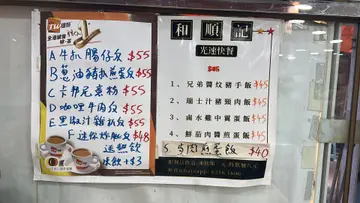 A 牛扒腸仔反 $55
B 蔥油豬扒煎蛋反 $55
C 卡邦尼意粉 $55
D 咖哩牛肉反 $55
E 黑椒汁雞扒反 $55
F 迷你炸魷反 $48
送熱飲
凍飲+$3
和順記
光速快餐
$45
1. 兄弟醬炆豬手飯 $45
2. 瑞士汁豬頸肉飯 $45
3. 鹵水雞中翼蛋飯 $45
4. 鮮茄肉醬煎蛋飯 $45
5 肉煎蛋飯 $40